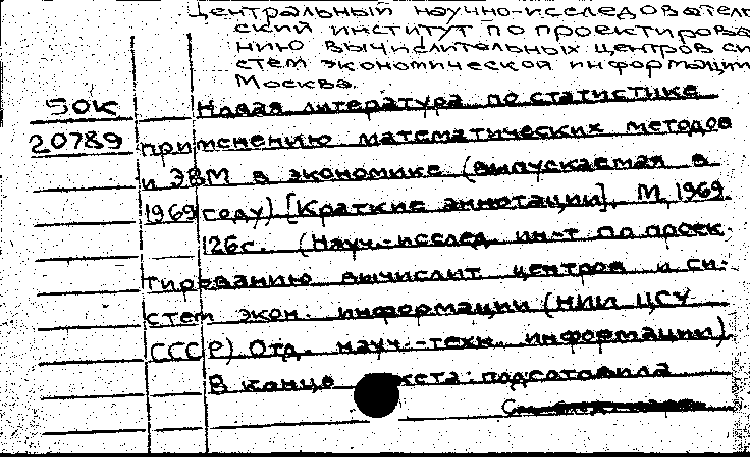 Центральный научно-исследователь
ский институт по проектирова
нию вычислительных центров си
стем экономической информации
Москва.
50К Новая литература по статистике
20789 применению математических методов
и ЭВМ в экономике (выпускаемая в
1969 году) [Краткие аннотации]. М, 1969
126с. (Науч.-исслед. ин-т по проек-
тированию вычислит центров и си-
стем экон. информации (НИИ ЦСУ
СССР). Отд. науч.-техн. информации)
В конце текста: подготовила